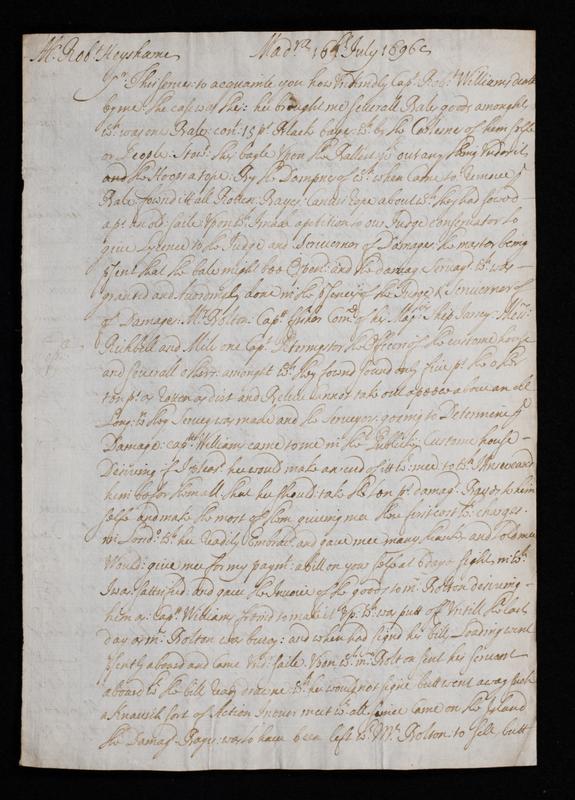 Mr. Robt. Heysham Madra. 16th July 1696
Sr. This serves to acquainte you how unkindly Capt. Robt. Williams dealt
by me: the case is this: hee brought me severall Bales goods amongst
wch. was one Bale: cont: 15 ps. black bays: wch. by the
or People: Stow'd this bayle upon the Ballest wth out any thing under it
and the Hoops a top: By the Dampnes of wch. when came to remove ye
Bale found itt all Rotten
a ps. an old saile upon wch. I made a petition to our Judge Conservator to
give Lycence to the Judge and Surveior of Damage: the master being
psent that the bale might bee opened: and the damag Survayd: wch. was
granted and accordingly done in the psence of the Judge & Surveior of
of Damage: Mr. Bolton: Capt. Fisher Comdr. of the Majts. Ship Surrey: Messrs.
Richbell and Miles one Capt. the officers of the custome house
and severall others: amongst wch. they found only five ps. the other
ten ps. as rotten as dirt and beleive cannot take out above an ell
Long: wch. they Survey was made and the Surveyors: going to Determine ye
Damage: Captt. Williams came to me in the Publick Custome house
Desiring if I pleas'd he would make an end of itt wth mee to wch. I answeared
him before them all. that hee should: take the ten ps. damag. Bays to him
selfe and make the most of them giveing mee the first cost wth. charges
in Lond: wch. hee readily Embraced and gave mee many thanks and told mee
Would: give mee for my paymt: a bill on you at days sight in wch.
I was sattisfied and gave the Invoice of the goods to Mr. Bolton desireing
him as Captt. Williams frend to make it up wch. was putt off untill the last
day as Mr. Bolton was busey: and when had signd his bills Loading went
psently aboard and came undr. saile Upon wch. Mr. Bolton sent his servant
aboard wth. the bill ready drawne wch. he would not signe butt went away such
a Knavish sort of Action I never meet wth. all since came on the Island
the Damag: Bays: was to have been left wth. Mr. Bolton to sell butt